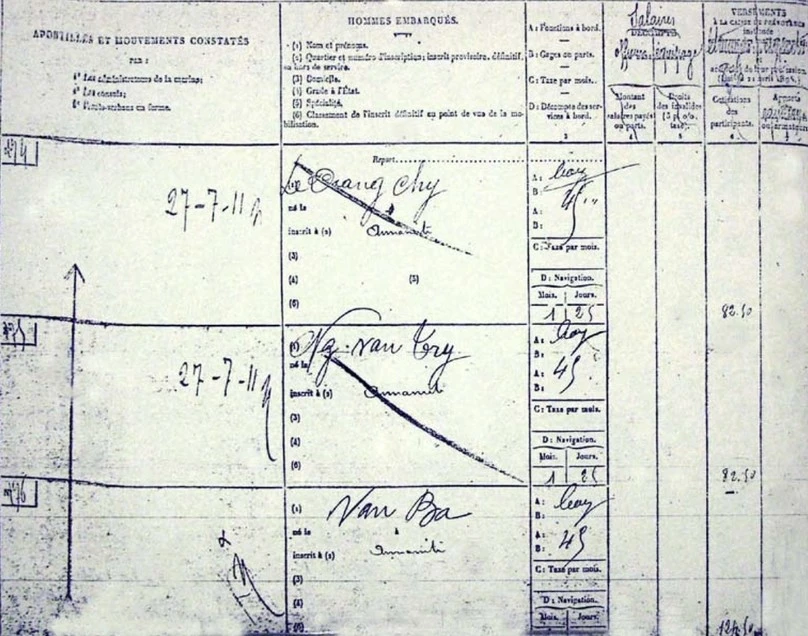 APOSTILLES ET MOUVEMENTS CONSTATÉS
PAR :
1° Les administrateurs de la marine;
2° Les consuls;
3° Procès-verbaux en forme.
HOMMES EMBARQUÉS.
(1) Nom et prénoms.
(2) Quartier et numéro d'inscription; inscrit provisoire, définitif, ou hors de service.
(3) Domicile.
(4) Grade à l'État.
(5) Spécialité.
(6) Classement de l'inscrit définitif au point de vue de la mobilisation.
A : Fonctions à bord.
B : Gages ou parts.
C : Taxe par mois.
D : Décompte des services à bord.
Salaires
DÉCOMPTE
Montant des salaires payés ou parts.
Droits des invalides (3 p. 0/0, taxe).
VERSEMENTS
À LA CAISSE DE PRÉVOYANCE
Cotisations des participants.
Report
27-7-11
(1) Le Quang Chy
né le
inscrit à (2) Annamite
(3)
(4) (5)
(6)
A : boy
B : 45
A :
B :
C : Taxe par mois.
D : Navigation.
Mois. Jours.
1 25
82.50
27-7-11
(1) Ng. van Try
né le
inscrit à (2) Annamite
(3)
(4)
(6)
A : boy
B :
A : 45
B :
C : Taxe par mois.
D : Navigation.
Mois. Jours.
1 25
82.50
(1) Van Ba
né le à
inscrit à (2) Annamite
(3)
(4)
(6)
A : boy
B :
A : 45
B :
C : Taxe par mois.
D : Navigation.
Mois. Jours.